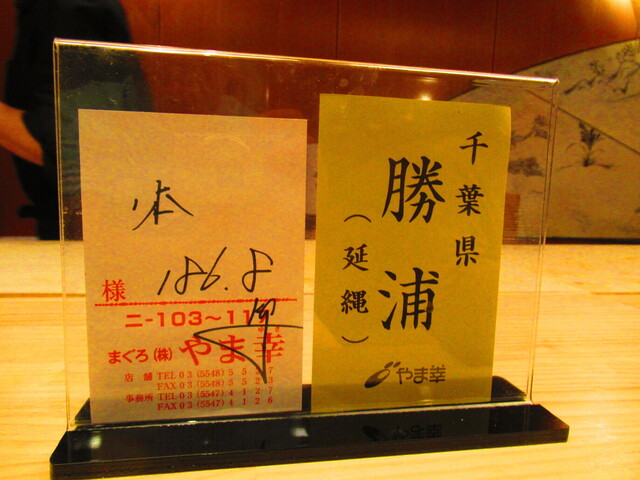 186.8
様
ニ-103~11
まぐろ(株)やま幸
店舗 TEL 03 (5548) 5 5 7
FAX 03 (5548) 5 5 2 3
事務所 TEL 03 (5547) 4 1 2 7
FAX 03 (5547) 4 1 2 6
千葉県
勝浦
(延縄)
やま幸